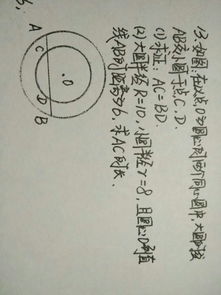 13.如图:在以点O为圆心的两个同心圆中,大圆的弦
AB交小圆于点C、D.
(1)求证:AC=BD.
(2)大圆半径R=10,小圆半径r=8,且圆心O到直
线AB的距离为6,求AC的长.
A
C
O
D
B